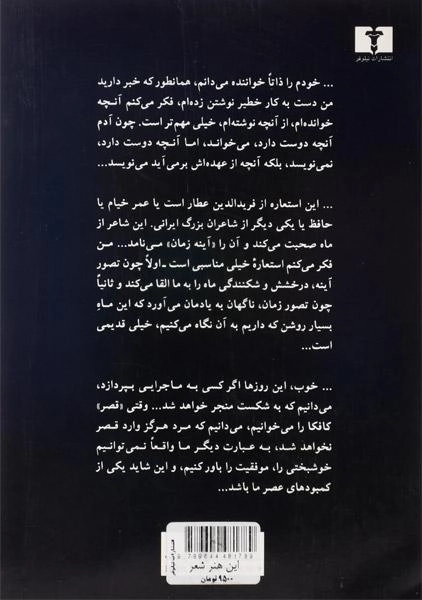 انتشارات نیلوفر
... خودم را ذاتاً خواننده می‌دانم، همانطور که خبر دارید
من دست به کار خطیر نوشتن زده‌ام، فکر می‌کنم آنچه
خوانده‌ام، از آنچه نوشته‌ام، خیلی مهم‌تر است. چون آدم
آنچه دوست دارد، می‌خواند، اما آنچه دوست دارد،
نمی‌نویسد، بلکه آنچه از عهده‌اش برمی‌آید می‌نویسد...
... این استعاره از فریدالدین عطار است یا عمر خیام یا
حافظ یا یکی دیگر از شاعران بزرگ ایرانی. این شاعر از
ماه صحبت می‌کند و آن را «آینه زمان» می‌نامد... من
فکر می‌کنم استعارهٔ خیلی مناسبی است ـ اولاً چون تصور
آینه، درخشش و شکنندگی ماه را به ما القا می‌کند و ثانیاً
چون تصور زمان، ناگهان به یادمان می‌آورد که این ماهِ
بسیار روشن که داریم به آن نگاه می‌کنیم، خیلی قدیمی
است...
... خوب، این روزها اگر کسی به ماجرایی بپردازد،
می‌دانیم که به شکست منجر خواهد شد... وقتی «قصر»
کافکا را می‌خوانیم، می‌دانیم که مرد هرگز وارد قصر
نخواهد شد، به عبارت دیگر ما واقعاً نمی‌توانیم
خوشبختی را، موفقیت را باور کنیم، و این شاید یکی از
کمبودهای عصر ما باشد...
انتشارات نیلوفر
9 789644 481789
این هنر شعر
۹۵۰۰ تومان